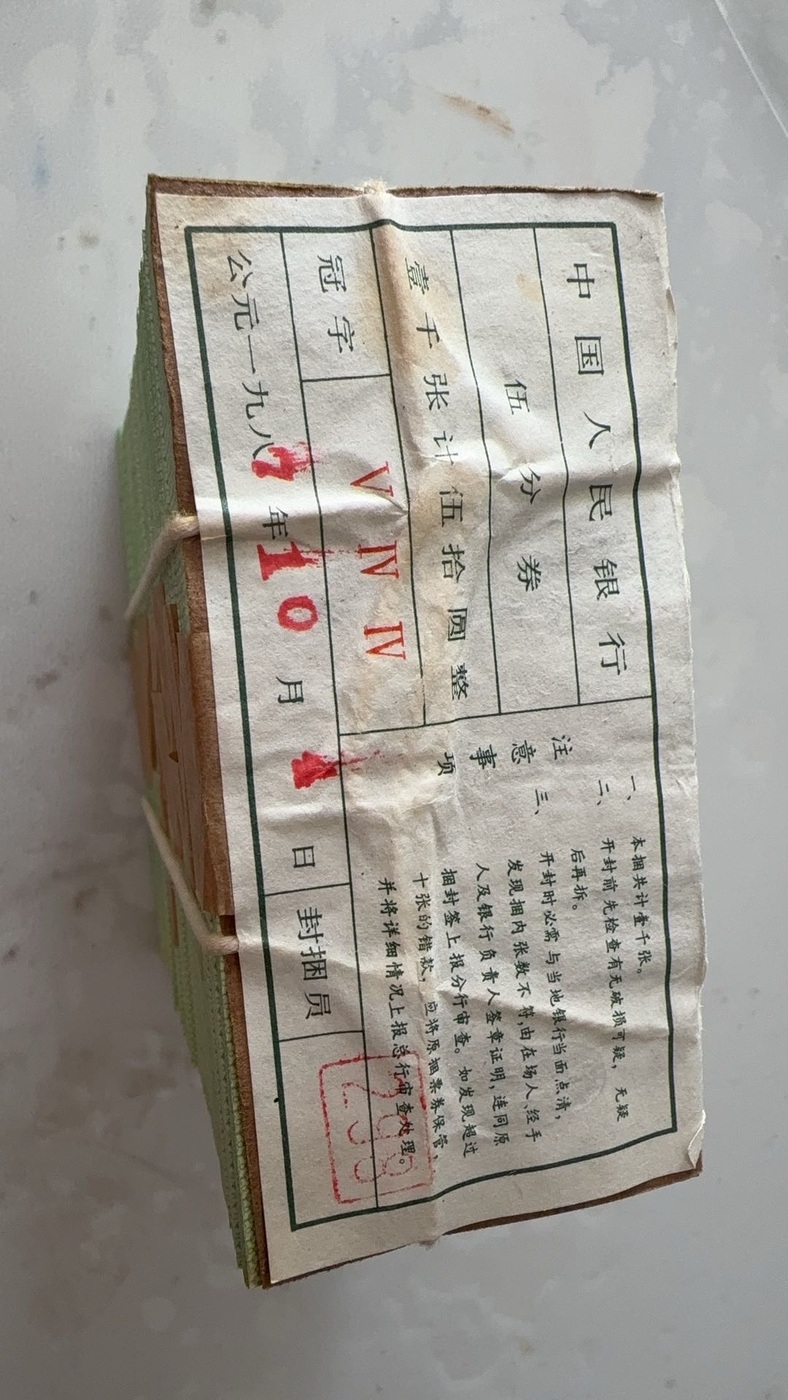 中国人民银行
伍分券
壹千张计伍拾圆整
冠字 V IV IV
公元一九八7年10月1日
封捆员
注意事项
一、本捆共计壹千张。
二、开封前先检查有无破损可疑，无疑
后再拆。
三、开封时必需与当地银行当面点清，
发现捆内张数不符，由在场人、经手
人及银行负责人签章证明，连同原
捆封签上报分行审查。如发现超过
十张的错款，应将原捆票券保管，
并将详细情况上报总行审查处理。